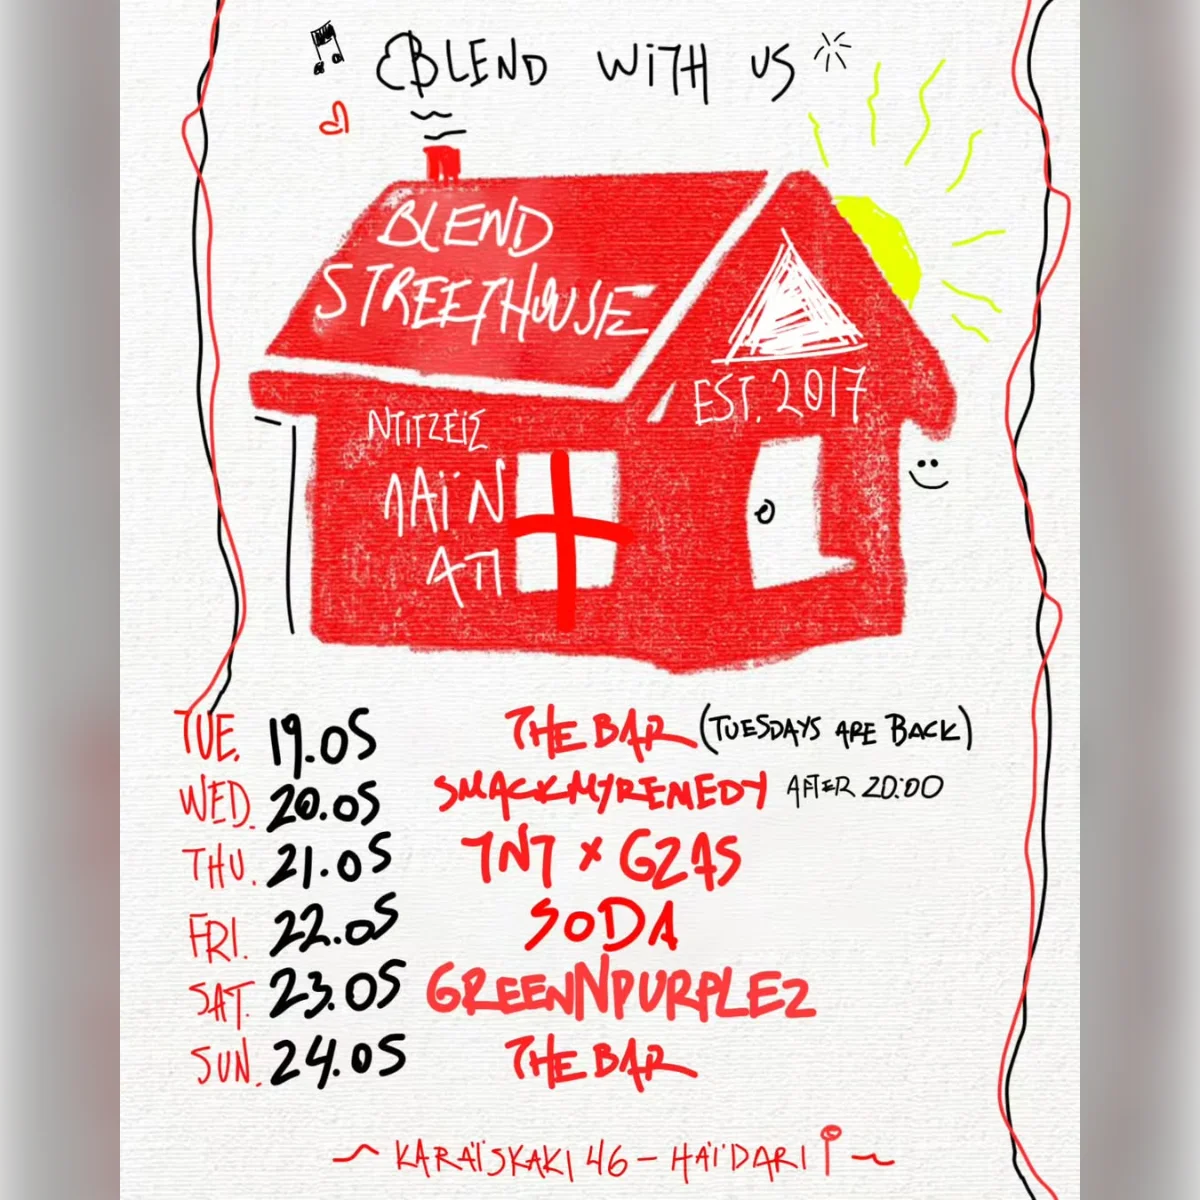 BLEND WITH US
BLEND
STREETHOUSE
EST. 2017
ΝΤΙΤΖΕΪΣ
ΛΑΪΝ
ΑΠ
TUE. 19.05 THE BAR (TUESDAYS ARE BACK)
WED. 20.05 SMACKMYREMEDY AFTER 20:00
THU. 21.05 TNT x G2AS
FRI. 22.05 SODA
SAT. 23.05 GREENNPURPLEZ
SUN. 24.05 THE BAR
~ KARAÏSKAKI 46 - HAÏDARI ~